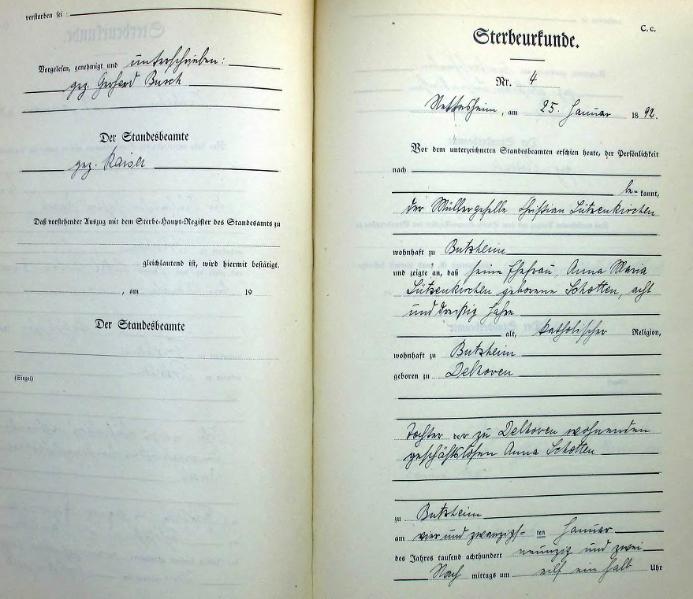 verstorben sei :
Vorgelesen, genehmigt und unterschrieben :
gez Gerhard Busch
Der Standesbeamte
gez. Kaiser
Daß vorstehender Auszug mit dem Sterbe-Haupt-Register des Standesamts zu
gleichlautend ist, wird hiermit bestätigt.
, am 19
Der Standesbeamte
(Siegel)
C. c.
Sterbeurkunde.
Nr. 4
Nettesheim, am 25. Januar 1892.
Vor dem unterzeichneten Standesbeamten erschien heute, der Persönlichkeit
nach
be- kannt,
der Müllergeselle Christian Lützenkirchen
wohnhaft zu Butzheim
und zeigte an, daß seine Ehefrau, Anna Maria
Lützenkirchen geborene Schotten, acht
und dreißig Jahre
alt, katholischer Religion,
wohnhaft zu Butzheim
geboren zu Delhoven
Tochter der zu Delhoven wohnenden
geschäftslosen Anna Schotten
zu Butzheim
am vier und zwanzigs- ten Januar
des Jahres tausend achthundert neunzig und zwei
Nach mittags um elf ein halb Uhr